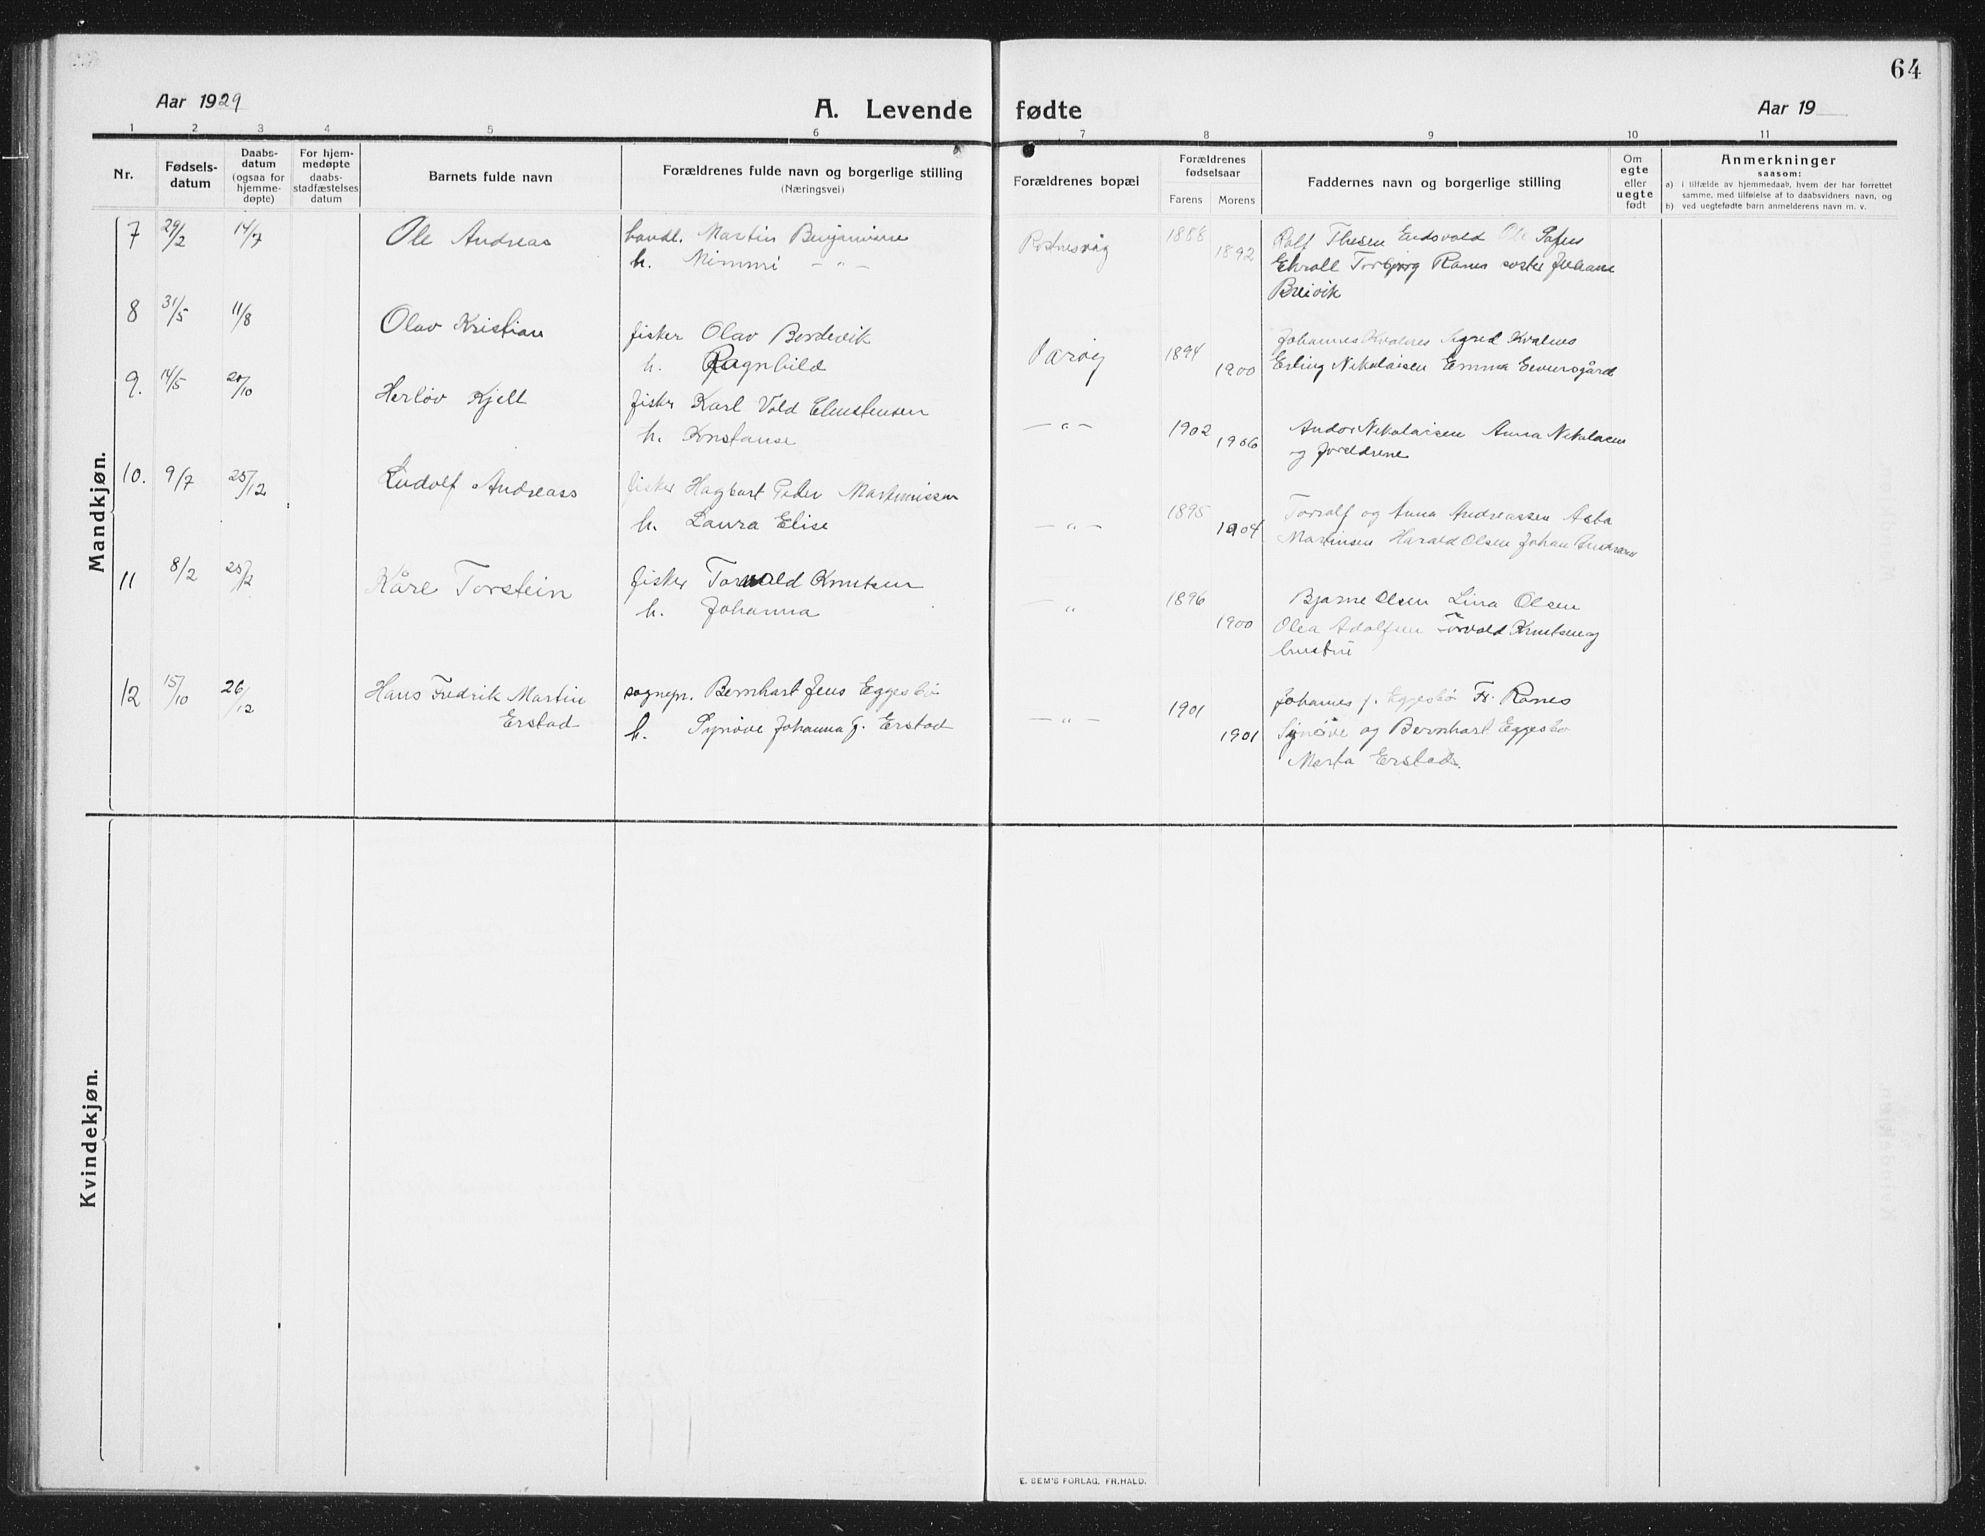 64
Aar 1929
A. Levende fødte
Aar 19
1 2 3 4 5 6 7 8 9 10 11
Nr.
Fødsels-
datum
Daabs-
datum
(ogsaa for
hjemme-
døpte)
For hjem-
medøpte
daabs-
stadfæstelses
datum
Barnets fulde navn
Forældrenes fulde navn og borgerlige stilling
(Næringsvei)
Forældrenes bopæl
Forældrenes
fødselsaar
Farens Morens
Faddernes navn og borgerlige stilling
Om
egte
eller
uegte
født
Anmerkninger
saasom:
a) i tilfælde av hjemmedaab, hvem der har forrettet
samme, med tilføielse af to daabsvidners navn, og
b) ved uegtefødte barn anmelderens navn m. v.
Mandkjøn.
7 29/2 14/7 Ole Andreas handl. Martin 1888 Rolf Thesen Ole
h. Mimmi — " — 1892 Torbjørg Ranes Johane
Breivik
8 31/5 11/8 Olav Kristian fisker Olav Bordevik Værøy 1894 Johannes Kvalnes Sigrid Kvalnes
h. Ragnhild 1900 Erling Nikolaisen Emma
9. 14/5 20/10 Herløv Kjell fisker Karl Vold — " — 1902 Andor Nikolaisen Anna Nikolaisen
h. Konstanse 1906 og foreldrene
10. 9/7 25/12 Ludolf Andreass fisker Hagbart Peder — " — 1895 Torralf og Anna Andreassen Asta
h. Laura Elise 1904 Martinsen Harald Olsen Johan
11 8/2 Kåre Torstein fisker Torvald Knutsen — " 1896 Bjarne Olsen Lina Olsen
h. Johanna 1900 Olea Adolfsen Torvald Knutsen og
hustru
12 15/10 26/12 Hans Fredrik Martin sognepr. Bernhart Jens Eggesbø — " — 1901 Johannes J. Eggesbø Fr. Ranes
Erstad h. Synøve Johanna J. Erstad 1901 Synøve og Bernhart Eggesbø
Marta Erstad.
Kvindekjøn.
E. SEM'S FORLAG, FR.HALD.